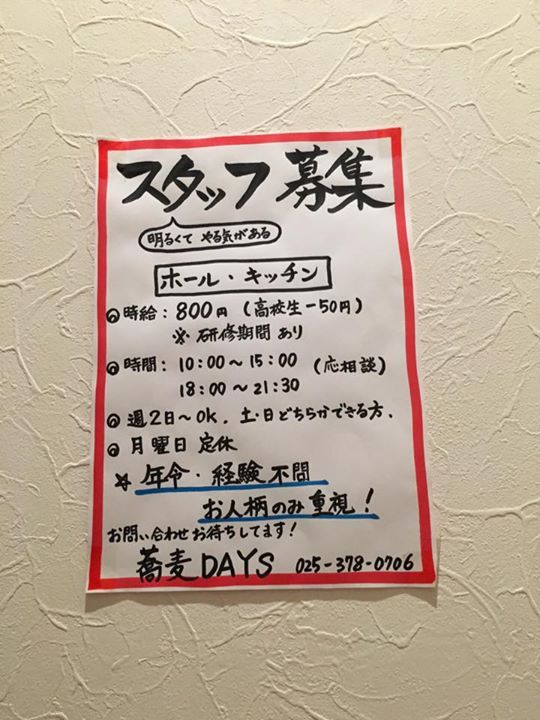 スタッフ募集
明るくて やる気がある
ホール・キッチン
◎時給：800円（高校生－50円）
※ 研修期間 あり
◎時間：10:00～15:00（応相談）
18:00～21:30
◎週2日～ok．土・日どちらかできる方．
◎月曜日 定休
☆年令・経験不問
お人柄のみ重視！
お問い合わせお待ちしてます！
蕎麦DAYS 025-378-0706